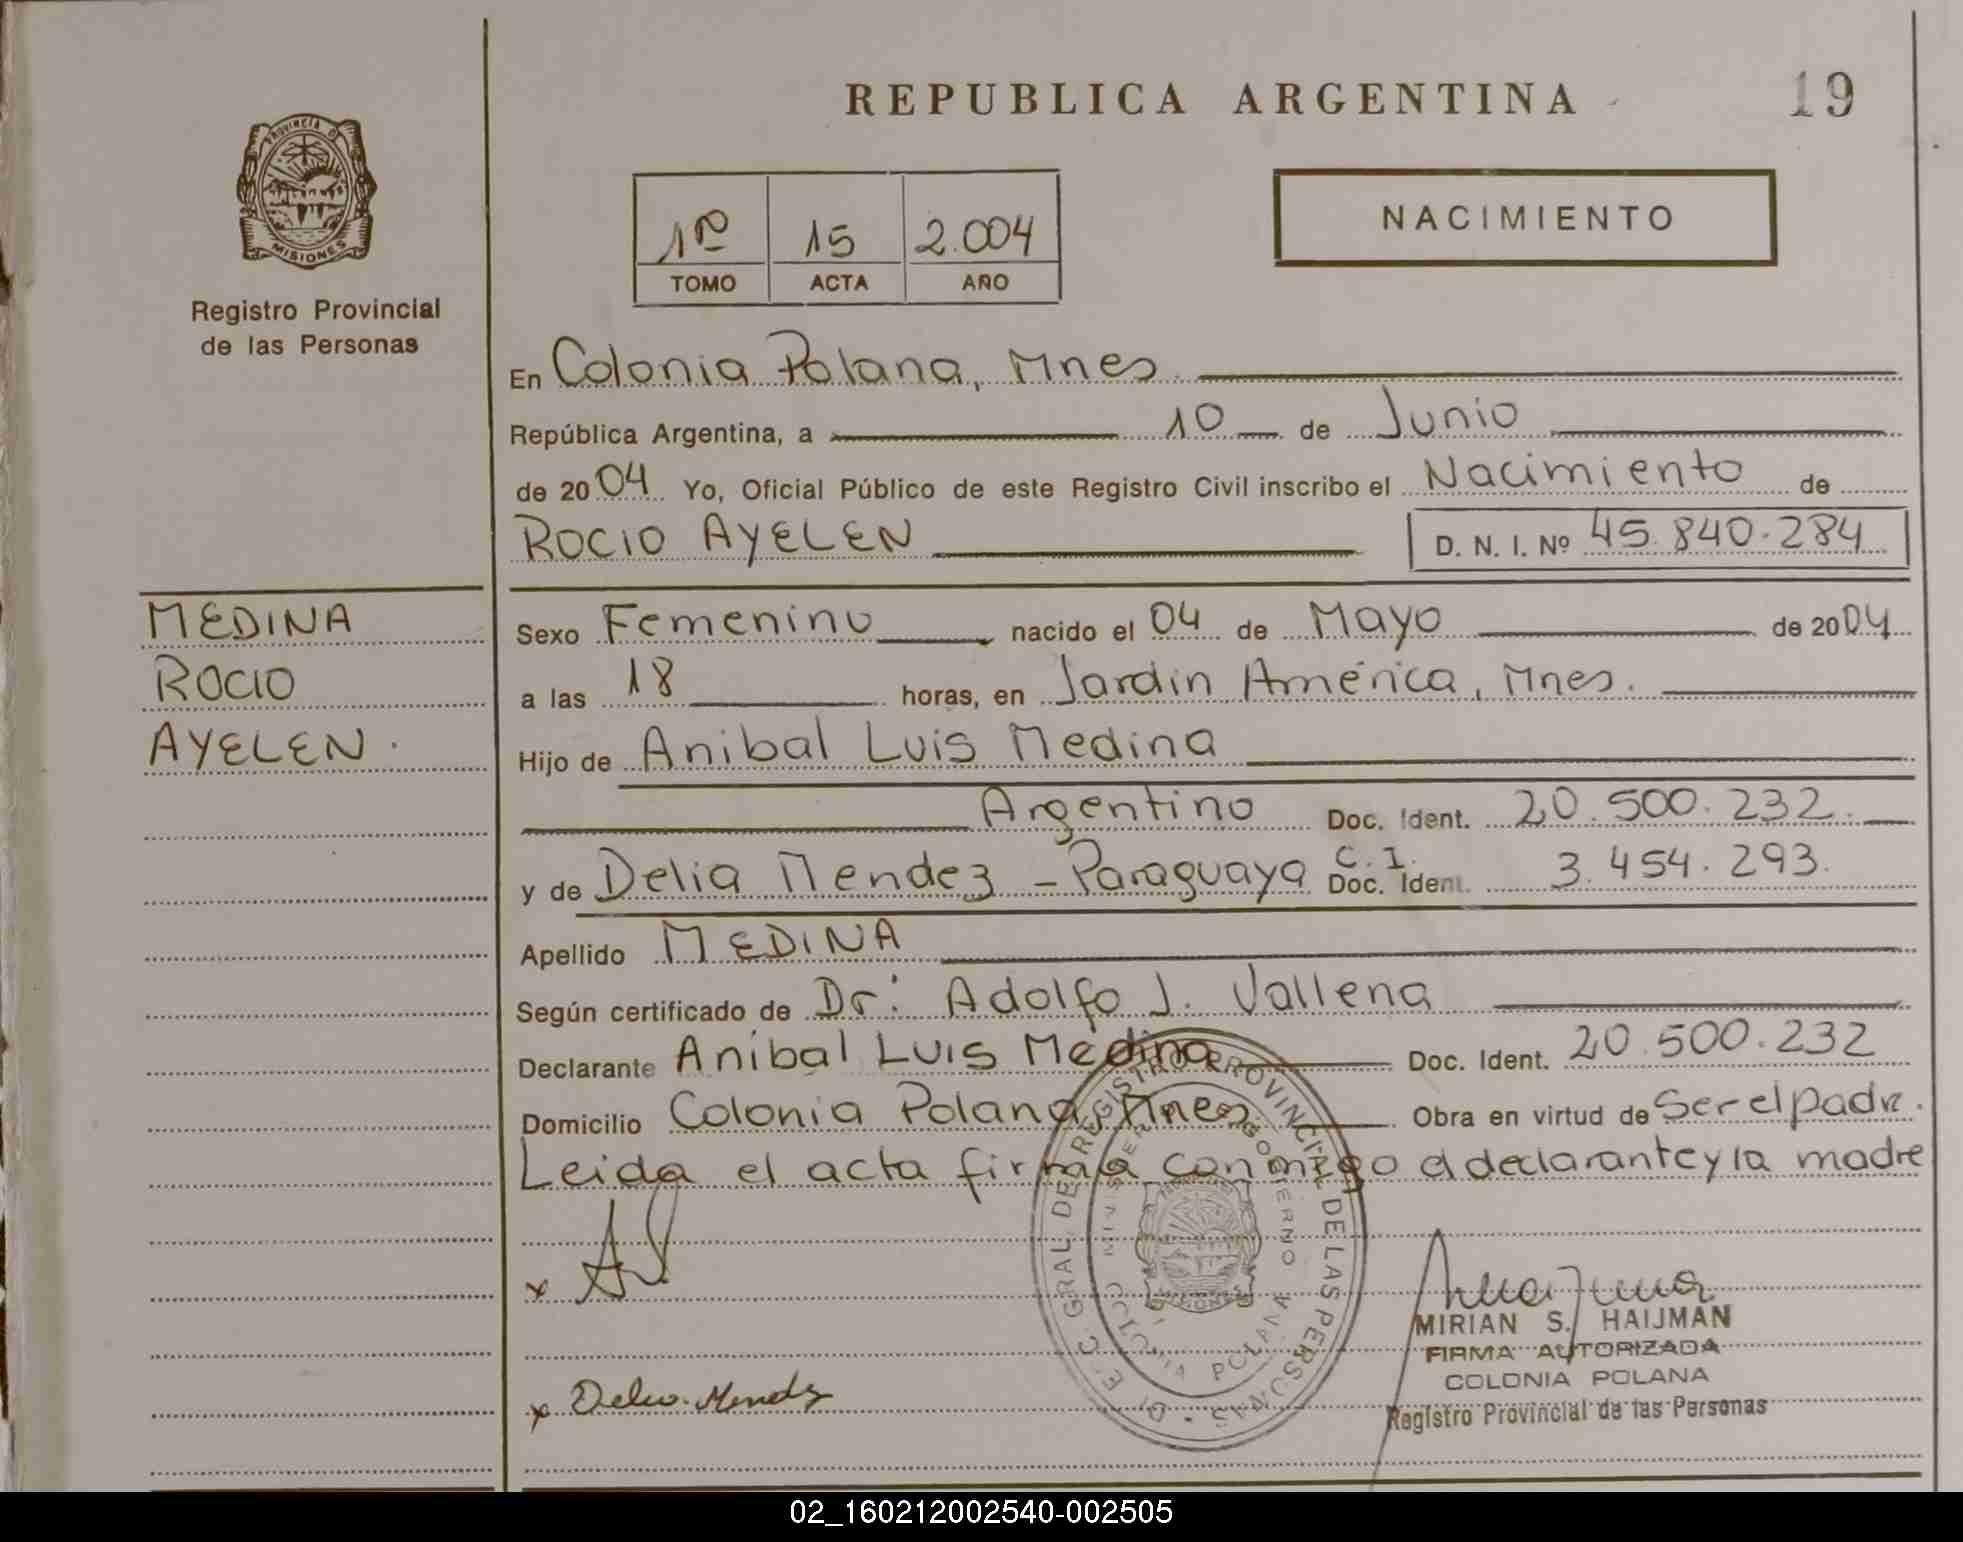 REPUBLICA ARGENTINA
19
PROVINCIA D
MISIONES
Registro Provincial
de las Personas
1º 15 2.004
TOMO ACTA AÑO
NACIMIENTO
En Colonia Polana, Mnes
República Argentina, a 10 de Junio
de 2004 Yo, Oficial Público de este Registro Civil inscribo el Nacimiento de
ROCIO AYELEN D. N. I. Nº 45.840.284
MEDINA
ROCIO
AYELEN.
Sexo Femenino nacido el 04 de Mayo de 2004
a las 18 horas, en Jardin América, Mnes.
Hijo de Anibal Luis Medina
Argentino Doc. Ident. 20.500.232.
y de Delia Mendez - Paraguaya C.I. Doc. Ident. 3.454.293.
Apellido MEDINA
Según certificado de Dr: Adolfo J. Vallena
Declarante Anibal Luis Medina Doc. Ident. 20.500.232
Domicilio Colonia Polana, Mnes Obra en virtud de Ser el padre.
Leida el acta firma conmigo el declarante y la madre
DIREC. GRAL. DE REGISTRO PROVINCIAL DE LAS PERSONAS
GOBIERNO
COLONIA POLANA
x
x Delia Mendez
MIRIAN S. HAIJMAN
FIRMA AUTORIZADA
COLONIA POLANA
Registro Provincial de las Personas
02_160212002540-002505